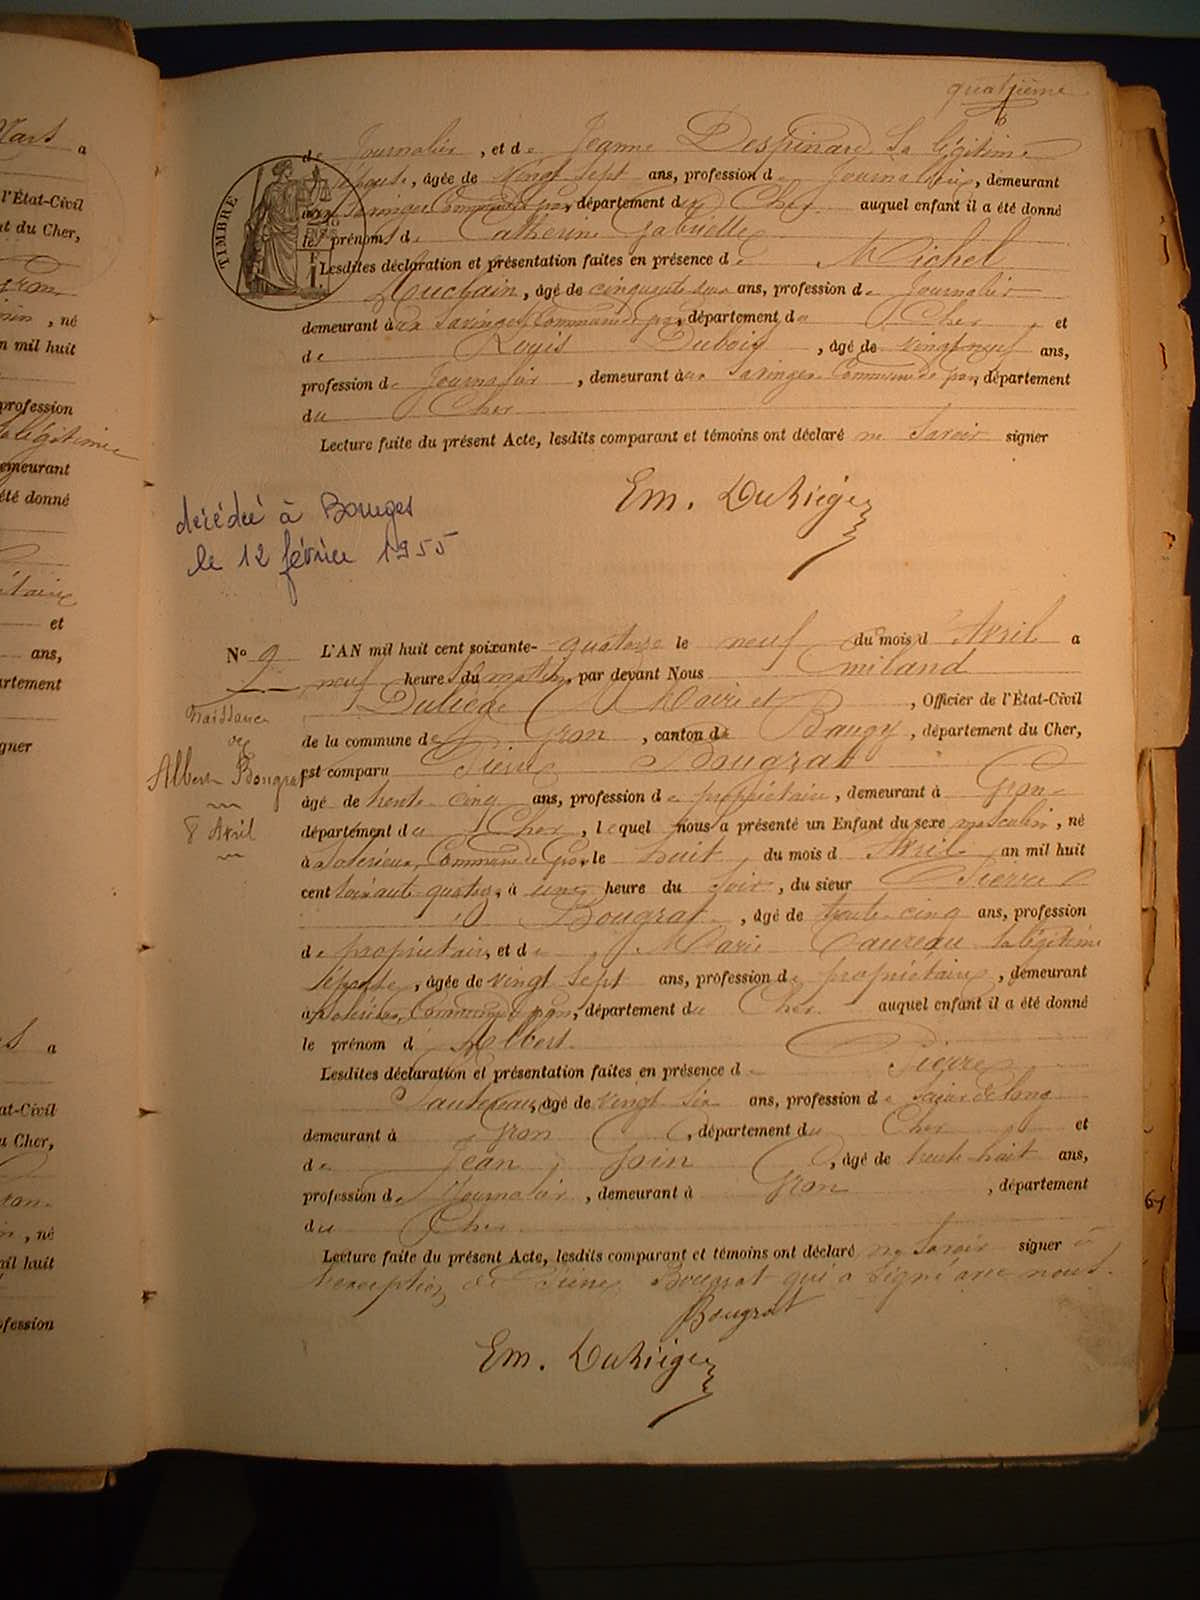 quatrième
Mars a
l'État-Civil
nt du Cher,
Gron
, né
n mil huit
profession
la légitime
demeurant
été donné
et
ans,
département
gner
a
at-Civil
u Cher,
, né
mil huit
fession
TIMBRE
de Journalier, et de Jeanne Despinard Sa légitime
épouse, âgée de Vingt Sept ans, profession de Journalière, demeurant
aux Commune de Gron, département du Cher auquel enfant il a été donné
les prénoms de Catherine Gabrielle
Lesdites déclaration et présentation faites en présence de Michel
Auclain, âgé de cinquante deux ans, profession de Journalier
demeurant à Commune de Gron, département du Cher et
de Louis Dubois, âgé de vingt neuf ans,
profession de Journalier, demeurant à Commune de Gron, département
du Cher
Lecture faite du présent Acte, lesdits comparant et témoins ont déclaré ne Savoir signer
Em. Duliège
décédée à Bourges
le 12 février 1955
N° 9 L'AN mil huit cent soixante-quatorze le neuf du mois d'Avril a
neuf heure du matin, par devant Nous Emiland
Duliège Maire et, Officier de l'État-Civil
de la commune de Gron, canton de Baugy, département du Cher,
est comparu Pierre Bougrat
âgé de trente cinq ans, profession de propriétaire, demeurant à Gron
département du Cher, lequel nous a présenté un Enfant du sexe masculin, né
à Commune de Gron le huit du mois d'Avril an mil huit
cent soixante quatorze, à une heure du Soir, du sieur Pierre
Bougrat, âgé de trente cinq ans, profession
de propriétaire, et de Marie Laureau Sa légitime
épouse, âgée de vingt Sept ans, profession de propriétaire, demeurant
à Commune de Gron, département du Cher auquel enfant il a été donné
le prénom d'Albert
Lesdites déclaration et présentation faites en présence de Pierre
Sautereau, âgé de vingt Six ans, profession de Scieur de long
demeurant à Gron, département du Cher et
de Jean Join, âgé de trente huit ans,
profession de Journalier, demeurant à Gron, département
du Cher
Lecture faite du présent Acte, lesdits comparant et témoins ont déclaré ne Savoir signer à
l'exception de Pierre Bougrat qui a Signé avec nous.
Bougrat
Em. Duliège
Naissance
de
Albert Bougrat
8 Avril